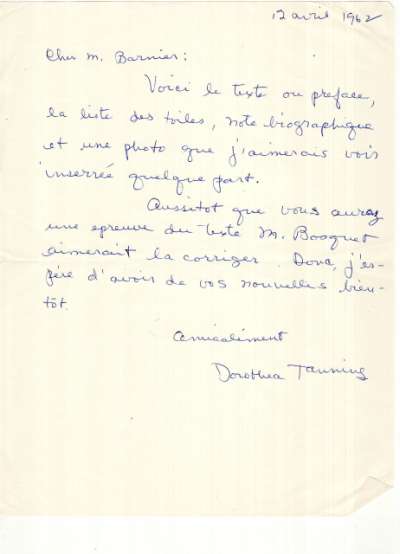 12 avril 1962
Cher M. Barnier:
Voici le texte ou preface,
la liste des toiles, note biographique
et une photo que j'aimerais voir
inserreé quelque part.
Aussitot que vous aurez
une epreuve du texte M. Bosquet
aimerait la corriger. Donc, j'es-
père d'avoir de vos nouvelles bien-
tôt.
amicalement
Dorothea Tanning